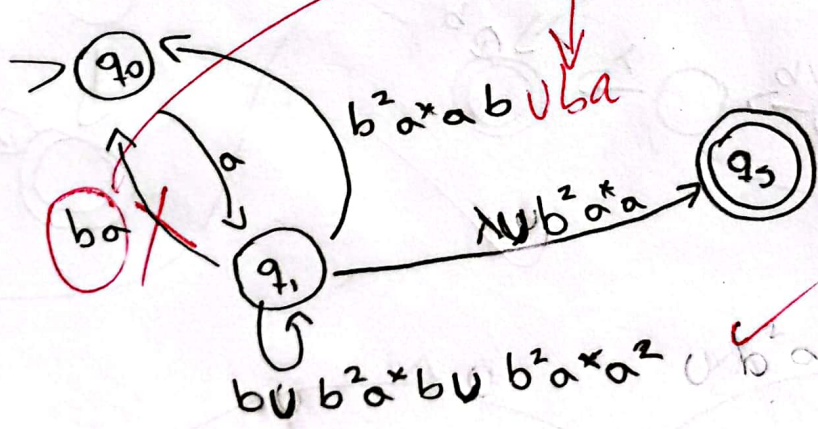 q₀
b²a*ab ∪ba
a
q₅
ba
λ∪b²a*a
q₁
b∪ b²a*b∪ b²a*a² ∪ b²a